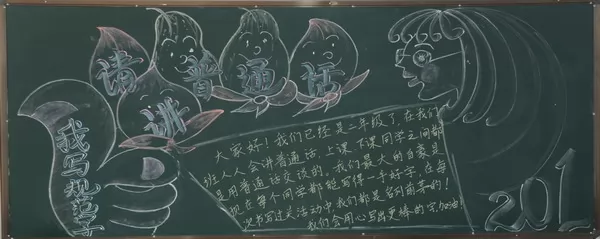 请讲普通话
我写规范字
大家好！我们已经是二年级了，在我们
班人人会讲普通话，上课下课同学之间都
是用普通话交谈的。我们最大的自豪是
现在每个同学都能写得一手好字，在每
次书写过关活动中我们都是名列前茅的！
我们会用心写出更棒的字，加油！
201